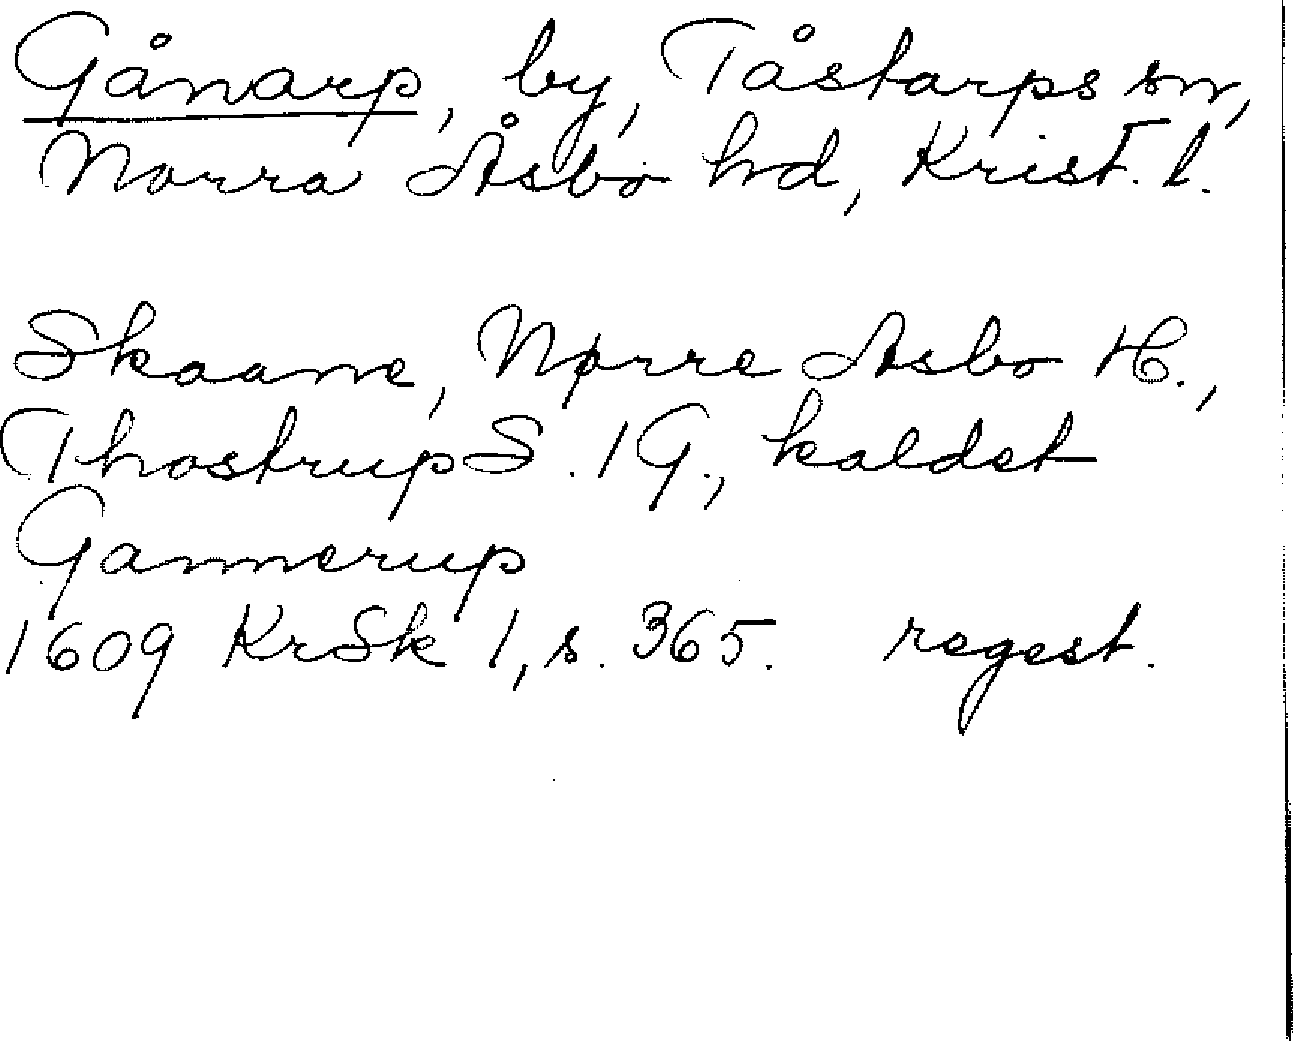 Gånarp, by, Tåstarps sn,
Norra Åsbo hd, Krist. l.
Skaane, Nørre Asbo H.,
Thostrup S. 1 G., kaldet
Gannerup
1609 KrSk 1, s. 365. regest.